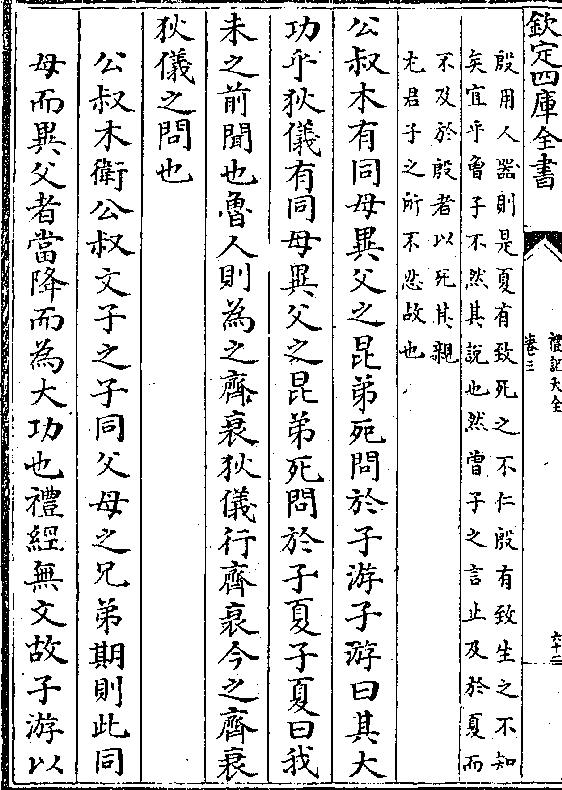 欽定四庫全書
禮記大全
卷三
六十二
殷用人器則是夏有致死之不仁殷有致生之不知
矣宜乎曽子不然其說也然曽子之言止及於夏而
不及於殷者以死其親
尤君子之所不忍故也
公叔木有同母異父之昆弟死問於子游子游曰其大
功乎狄儀有同母異父之昆弟死問於子夏子夏曰我
未之前聞也魯人則為之齊衰狄儀行齊衰今之齊衰
狄儀之問也
公叔木衛公叔文子之子同父母之兄弟期則此同
母而異父者當降而為大功也禮經無文故子游以